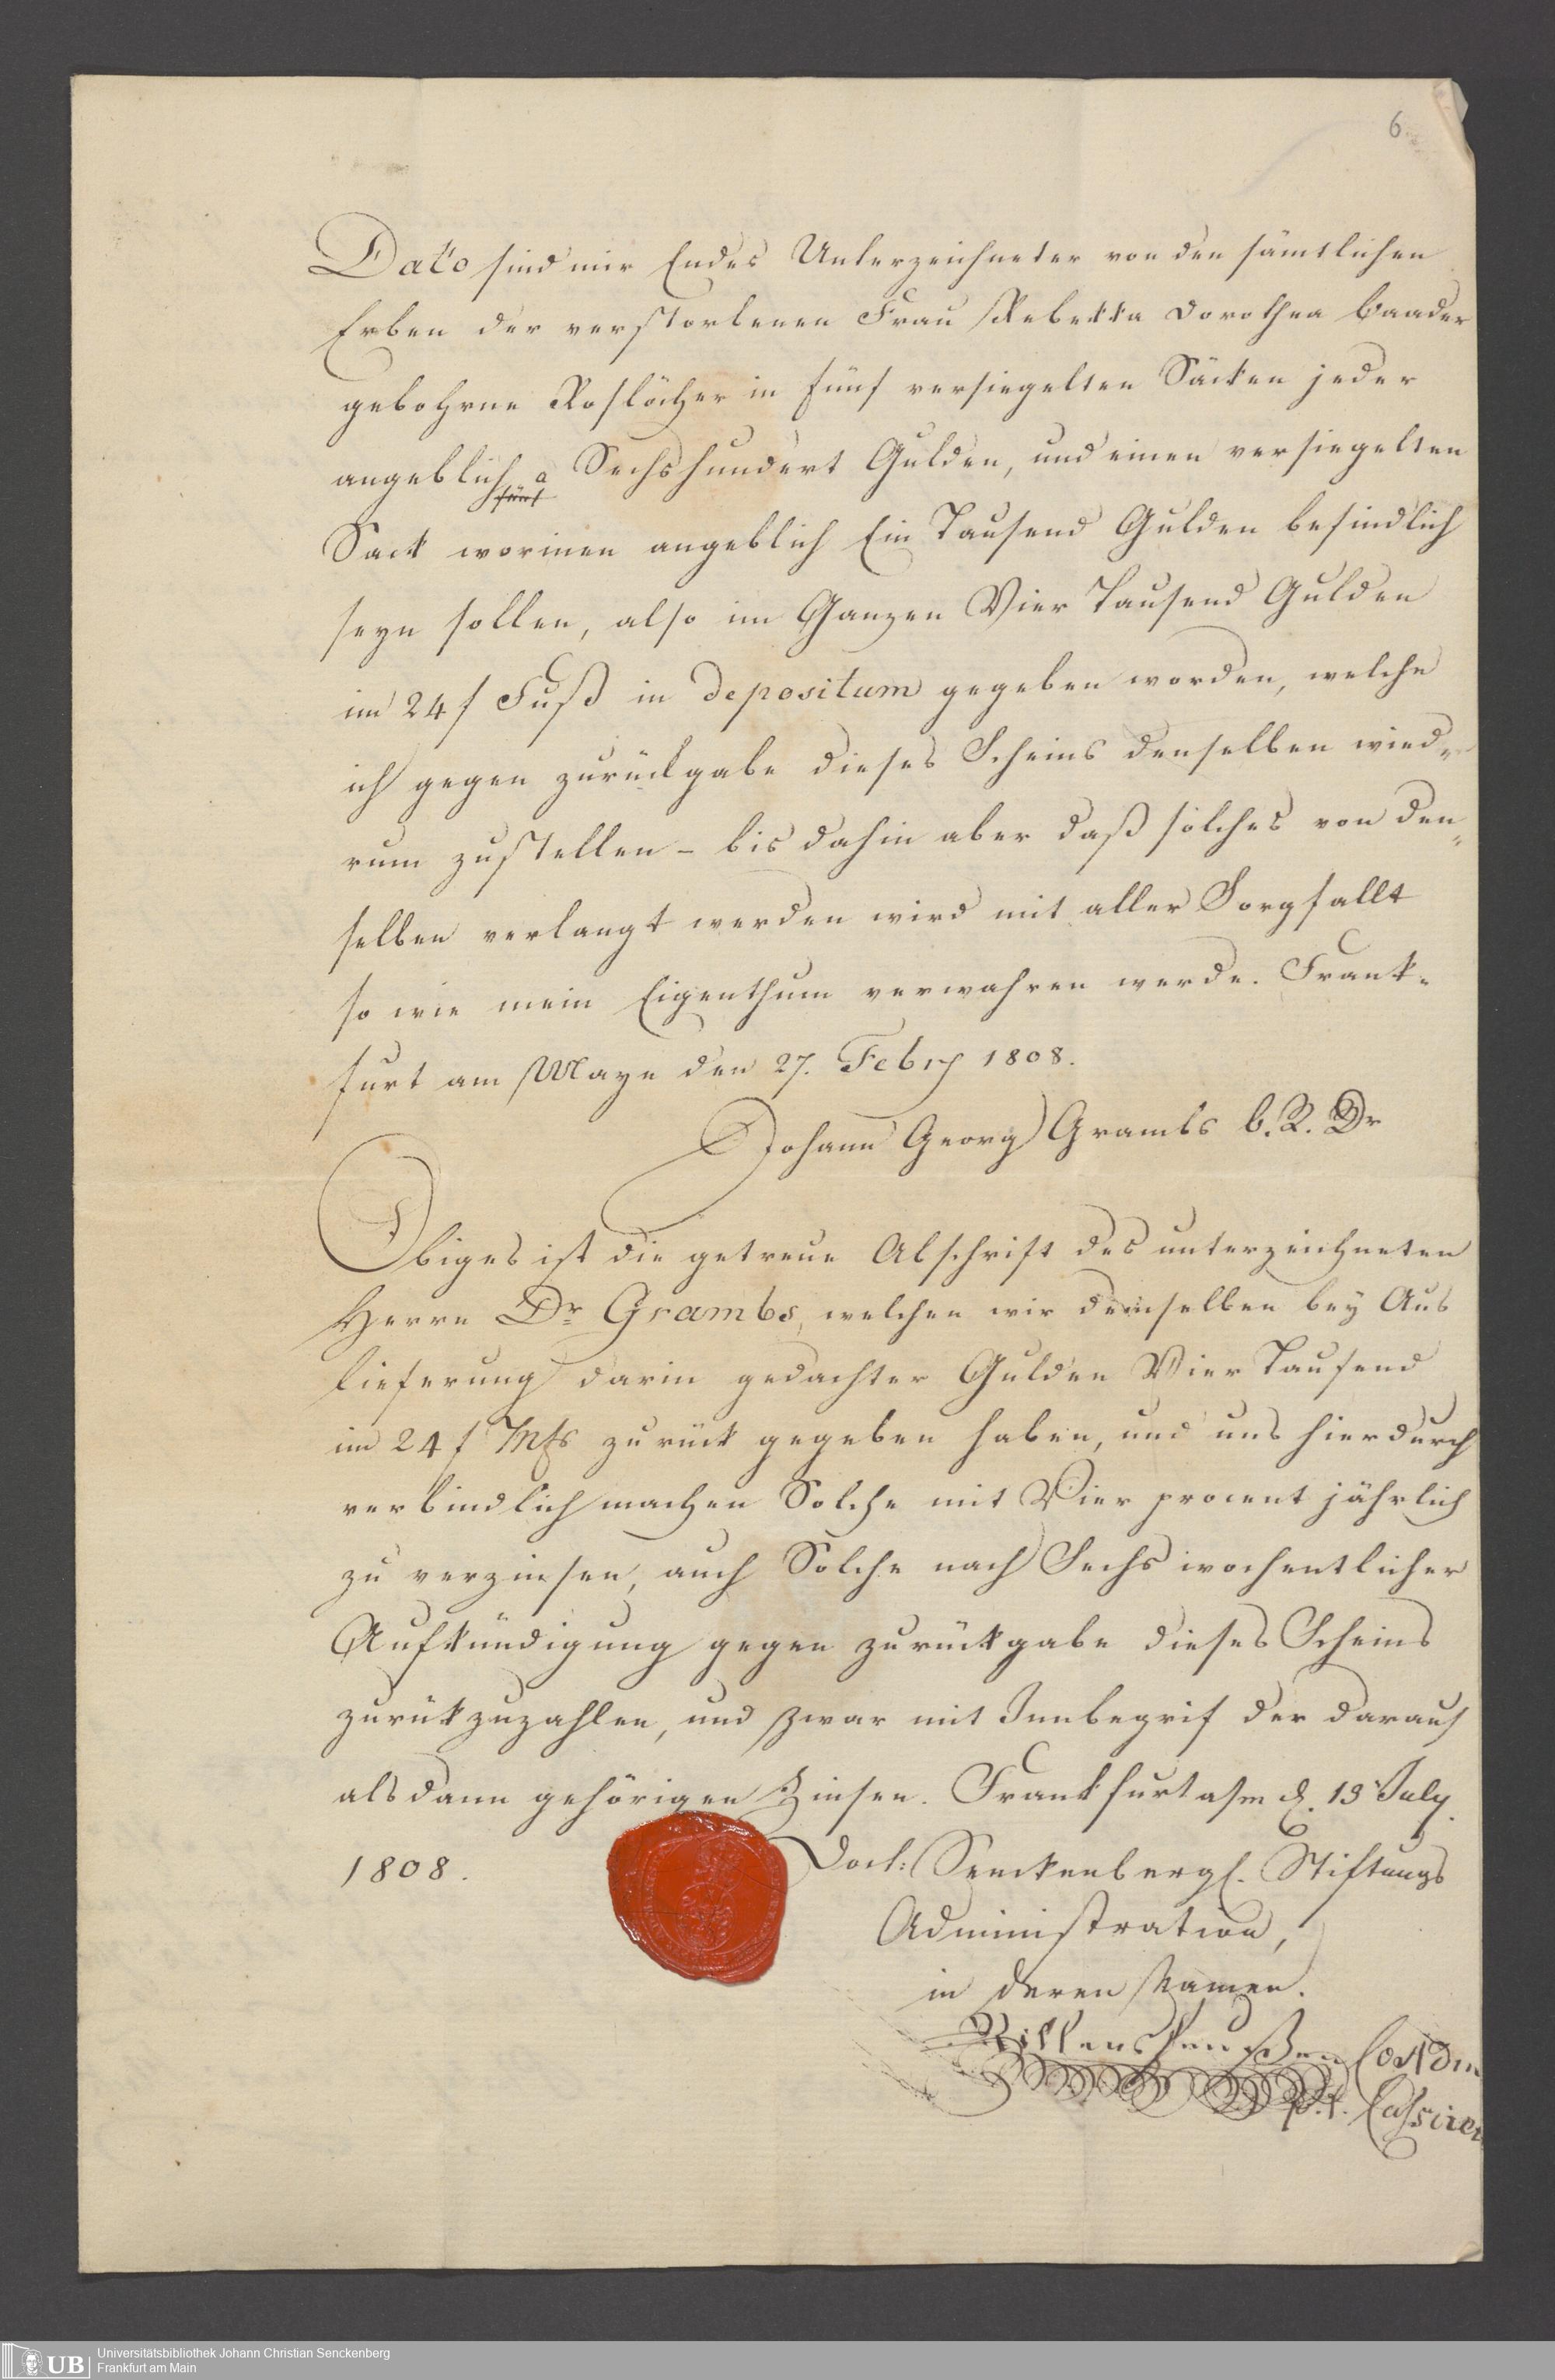 6.
Dato sind mir Endes Unterzeichneter von den sämtlichen
Erben der verstorbenen Frau Rebekka Dorothea Baader
gebohrne Roslöcher in fünf versiegelten Säcken jeder
angeblich a Sechshundert Gulden, und einen versiegelten
fünf
Sack worinen angeblich Ein Tausend Gulden befindlich
seyn sollen, also im Ganzen Vier Tausend Gulden
im 24 f Fuß in depositum gegeben worden, welche
ich gegen zurückgabe dieses Scheins denselben wied„
rum zustellen – bis dahin aber daß solches von den„
selben verlangt werden wird mit aller Sorgfallt
so wie mein Eigenthum verwahren werde. Frank-
furt am Mayn den 27. Febry 1808.
Johann Georg Grambs b. R. Dr
Obiges ist die getreue Abschrift des unterzeichneten
Herrn Dr Grambs, welchen wir demselben bey Aus
lieferung darin gedachter Gulden Vier Tausend
im 24 f Mfs zurück gegeben haben, und uns hierdurch
verbindlich machen Solche mit Vier procent jährlich
zu verzinsen, auch Solche nach Sechs wochentlicher
Aufkündigung gegen zurückgabe dieses Scheins
zurükzuzahlen, und zwar mit Innbegrif der daraus
alsdann gehörigen Zinsen. Frankfurt a/m d. 13 July.
1808.
Doct: Senckenbergl. Stiftungs
Administration,
in deren Namen.
CoAdm
p.t. Cassirer
UB
Universitätsbibliothek Johann Christian Senckenberg
Frankfurt am Main